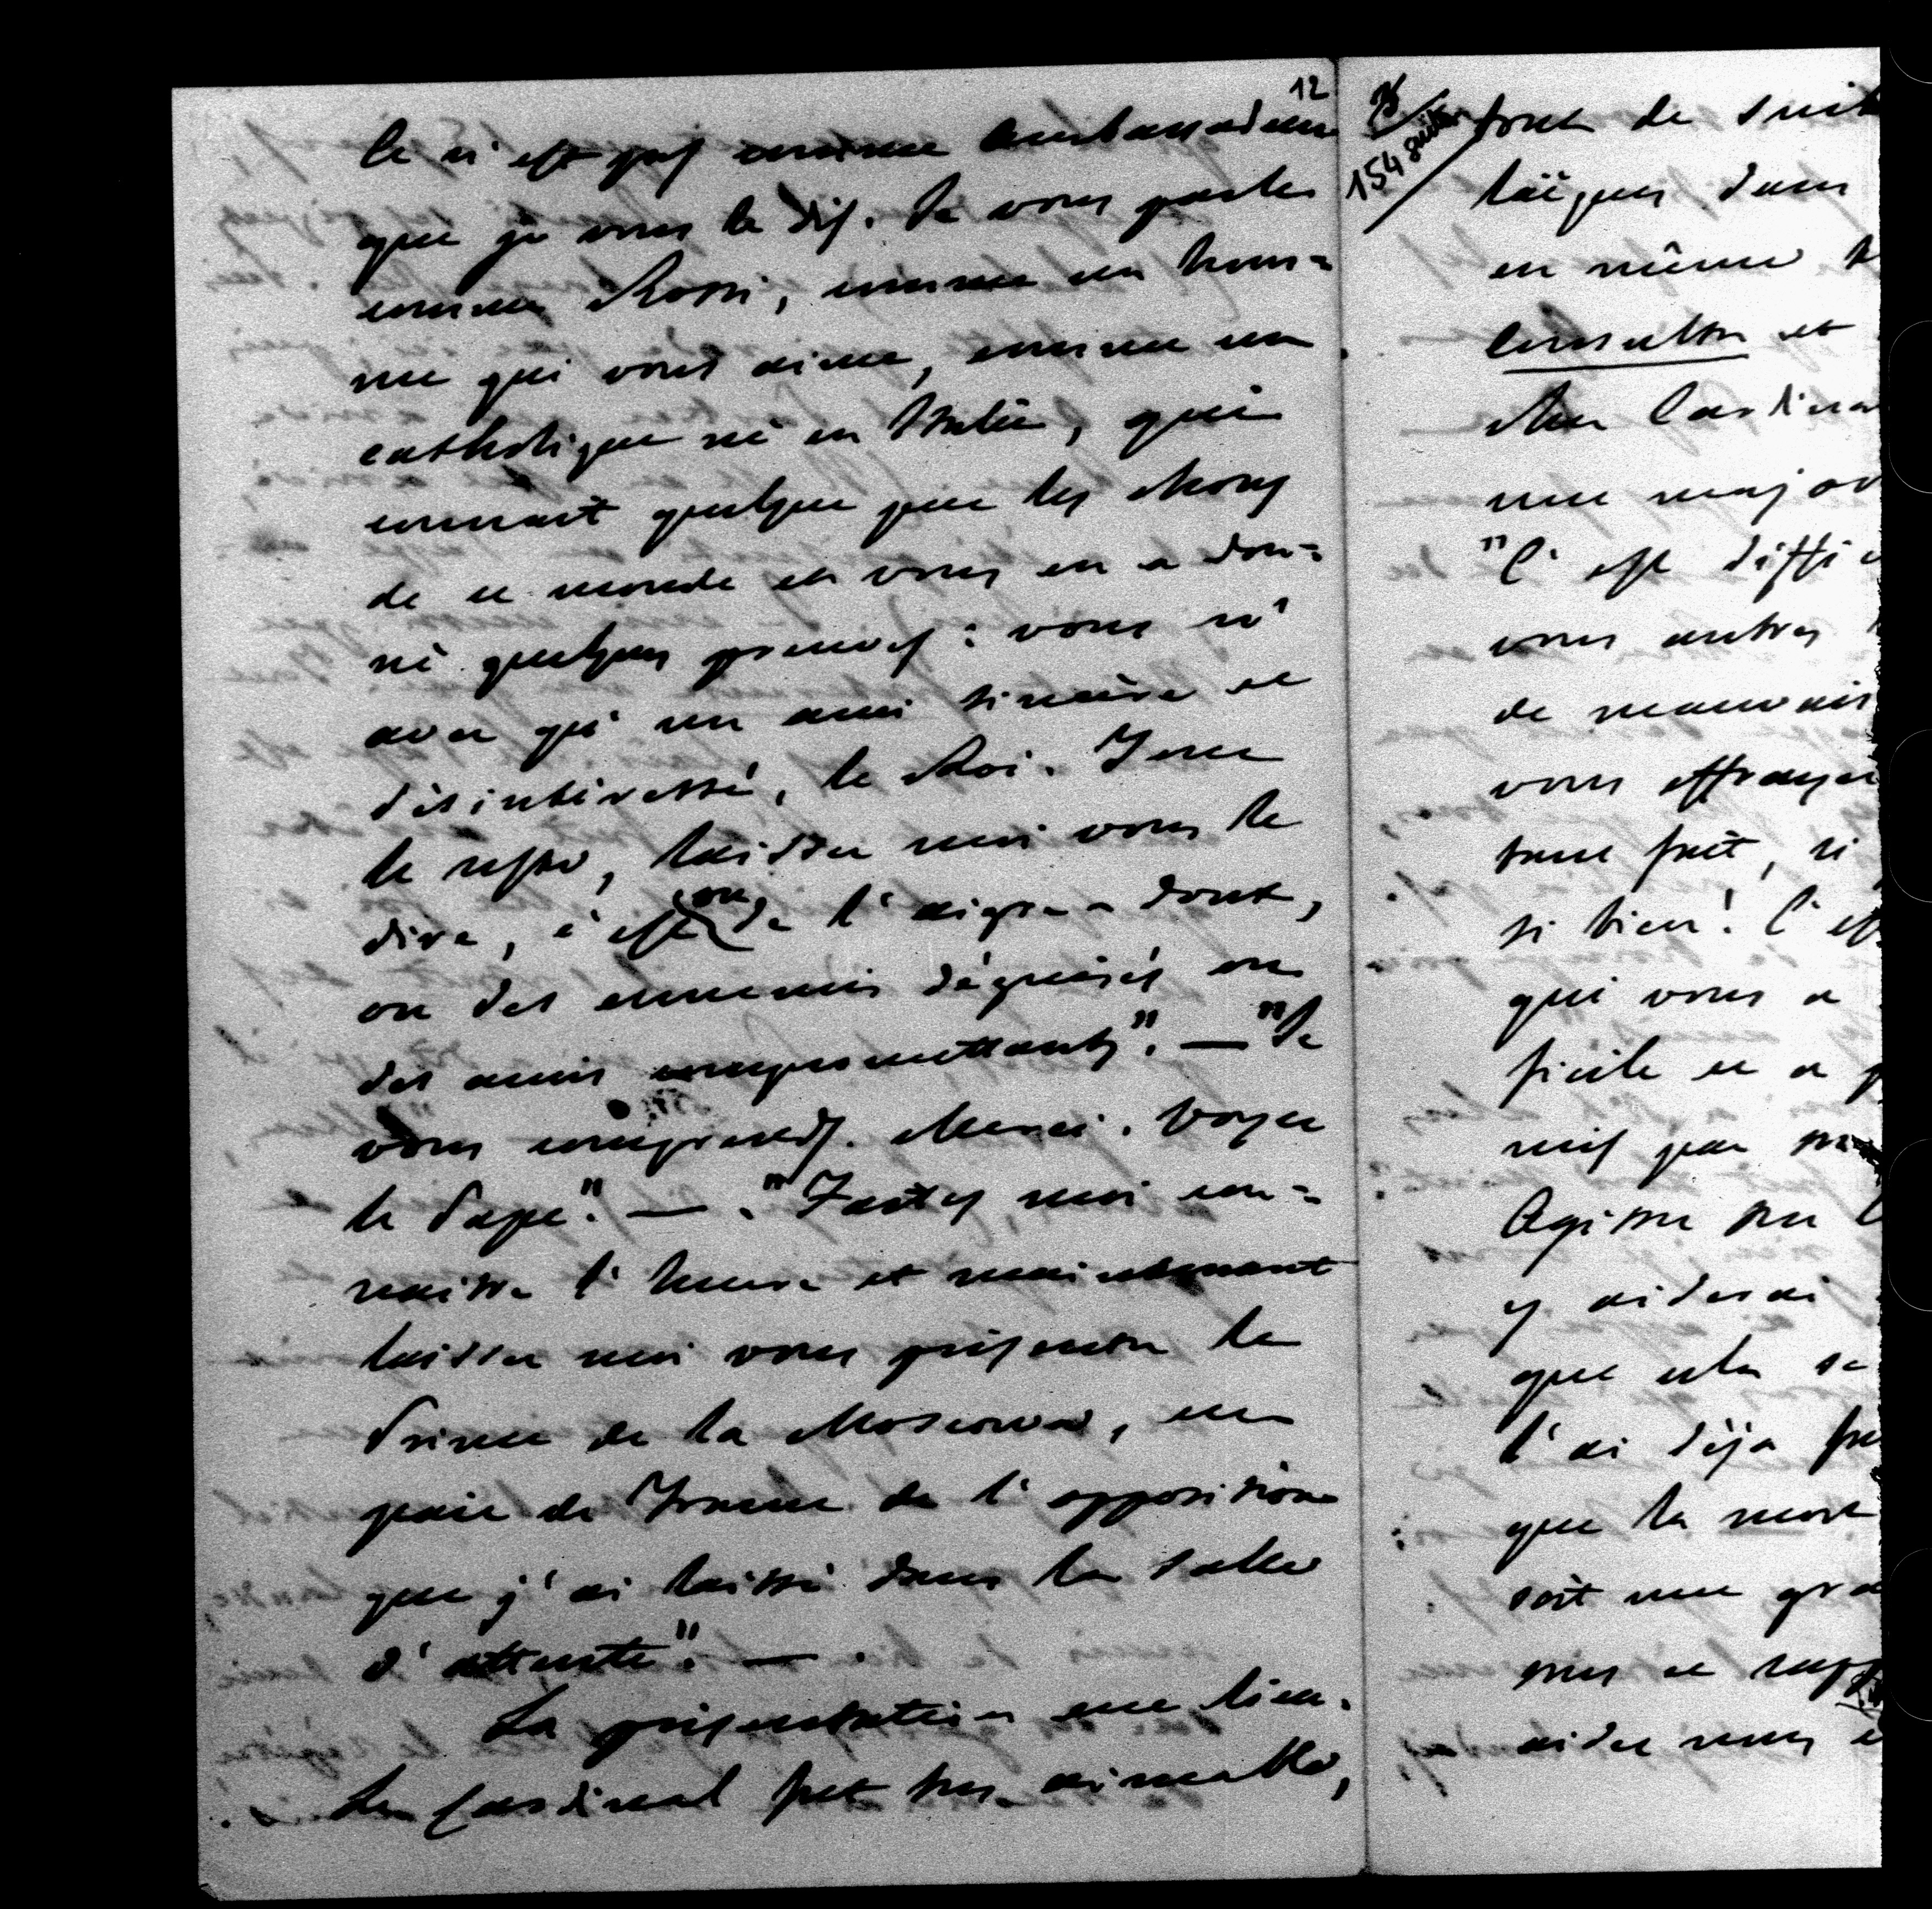 12
Ce n'est pas comme Ambassadeur
que je vous le dis. Je vous parle
comme Rossi, comme un hom=
me qui vous aime, comme un
catholique né en Italie, qui
connait quelque peu les choses
de ce monde et vous en a don=
né quelques preuves : vous n'
avez qu'un ami sincère et
désintéressé, le Roi.
le reste, laissez moi vous le
dire, c'est ou de l'aigre-doux,
ou des ennemis déguisés ou
des amis compromettants". — "Je
vous comprends. Merci. Voyez
le Pape". — . "Faites moi con=
naitre l'heure et maintenant
laissez moi vous présenter le
Prince de la Moscowa, un
pair de France de l'opposition
que j'ai laissé dans la salle
d'attente". — .
La présentation eut lieu.
Le Cardinal fut très aimable,
154 suite
tout de suit
laïques dans
en même t
Consulta et
chez Cardina
une major
"C'est diffi
vous autres
de mauvais
vous effrayer
tout fait, si
si bien! C'es
qui vous a
ficile et a p
mis par
Agissez sur l
y aiderai
que cela se
l'ai déjà fa
que la mort
soit une gra
aidez nous e